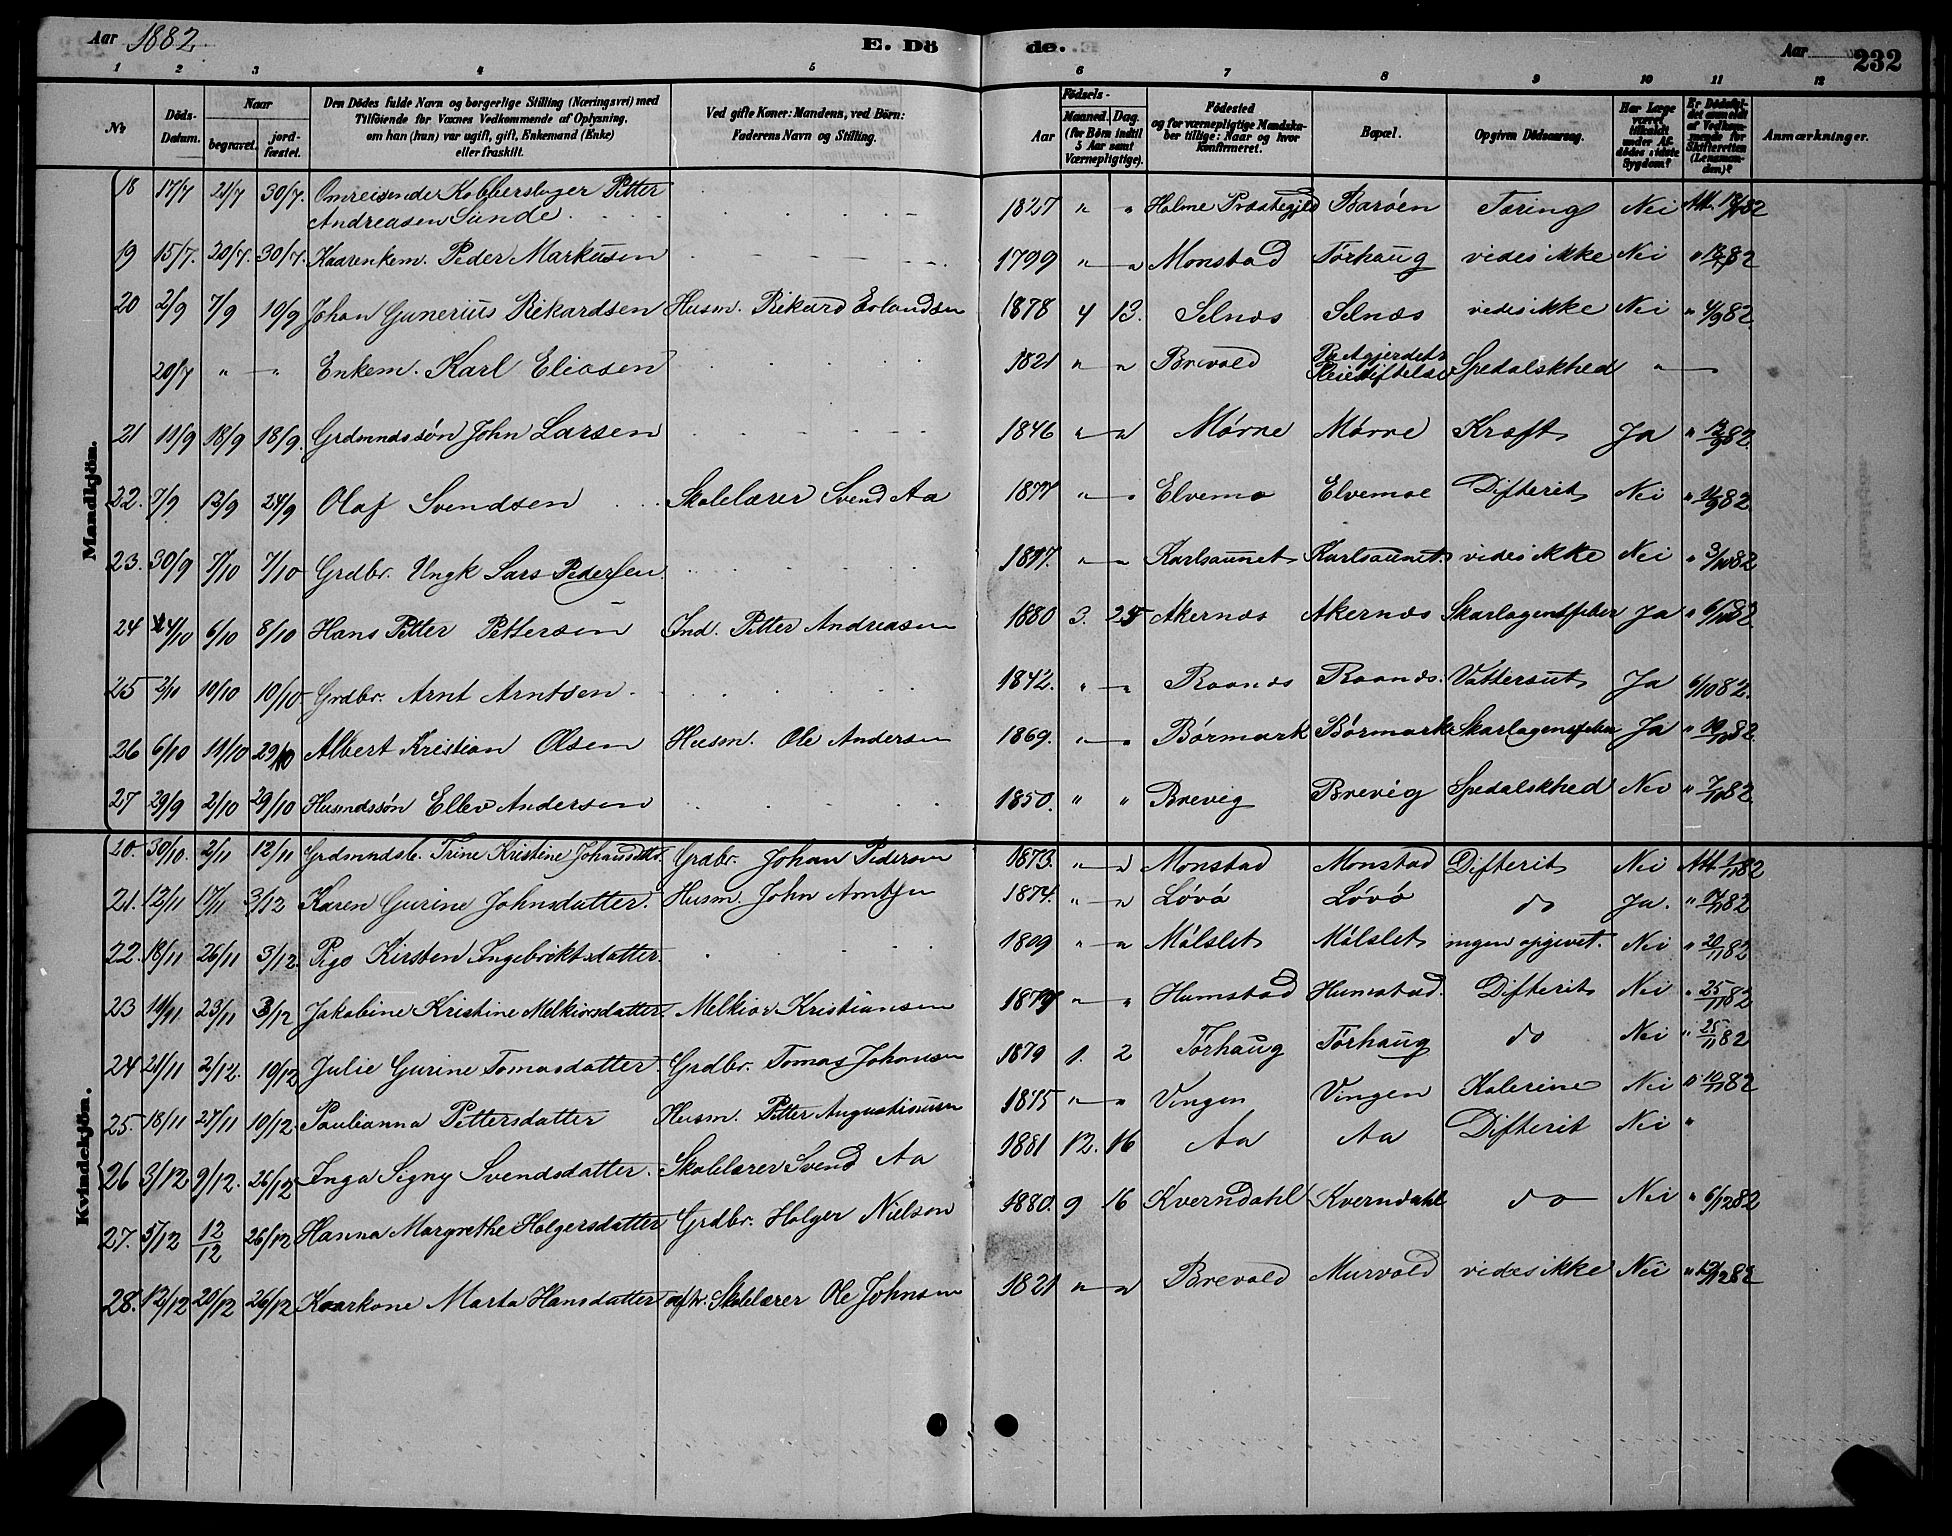 Aar 1882 E. Dö de. Aar 232
1 2 3 4 5 6 7 8 9 10 11 12
No
Döds-Datum.
Naar
begravet.
jord-fæstet.
Den Dödes fulde Navn og borgerlige Stilling (Næringsvei) med
Tilföiende for Voxnes Vedkommende af Oplysning,
om han (hun) var ugift, gift, Enkemand (Enke)
eller fraskilt.
Ved gifte Koner: Mandens, ved Börn:
Faderens Navn og Stilling.
Födsels-
Aar
Maaned. Dag.
(for Börn indtil
5 Aar samt
Værnepligtige).
Födested
og for værnepligtige Mandska-
ber tillige: Naar og hvor
konfirmeret.
Bopæl.
Opgiven Dödsaarsag.
Har Læge
været
tilkaldt
under Af-
dödes sidste
Sygdom?
Er Dødsfal-
det anmeldt
af Vedkom-
mende for
Skifteretten
(Lensman-
den)?
Anmærkninger.
Mandkjön.
18 17/7 21/7 30/7. Omreisende Kobberslager Petter
Andreasen Sunde 1827 " " Holme Præstegjeld Barøen Tæring Nei Att.
19 15/7. 20/7. 30/7. Kaarenkem. Peder Markusen 1799 " " Monstad Tørhaug vides ikke Nei
20 2/9 7/9 10/9 Johan Gunerius Rikardsen Husm. Rikard Erlandsen 1878 4 13. Selnæs Selnæs vides ikke Nei " 4/9 82
20/7 " " Enkem. Karl Eliasen 1821 " " Brevold Reitgjerdets
Pleiestiftelse Spedalskhed "
21 11/9 18/9 18/9. Grdmndssøn John Larsen 1846 " " Mørre Mørre Kræft Ja " 13/9 82
22. 7/9 12/9 24/9 Olaf Svendsen Skolelærer Svend Aa 1877 " " Elvemo Elvemoe Difterit Nei " 11/9 82
23. 30/9 7/10 7/10 Grdbr. Ungk Lars Pedersen. 1817. " " Karlsaunet Karlsaunet. vides ikke Nei " 3/10 82
24 4/10 6/10 8/10 Hans Petter Pettersen Ind. Petter Andreasen 1880 3. 25 Akernæs Akernæs Skarlagensfeber Ja " 6/10 82
25 10/10 10/10 Grdbr. Arnt Arntsen. 1842. " " Raanæs Raanæs. Vattersut Ja 6/10 82.
26 6/10 11/10 29/10 Albert Kristian Olsen Husm. Ole Andersen 1869. " " Børmark Børmark Skarlagensfeber Ja " 10/10 82.
27 29/9 2/10 29/10 Husmdssøn Ellev Andersen 1850. " " Brevig Brevig Spedalskhed Nei " 7/10 82
Kvindekjön.
20. 30/10. 2/11 12/11 Grdmndsb. Trine Kristine Johansdatter. Grdbr. Johan Pedersen 1873. " " Monstad Monstad Difterit Nei Att. 1/11 82
21. 12/11 17/11 3/12 Karen Gurine Johnsdatter. Husm. John Arntsen 1874. " " Løvø Løvø do Ja.
22. 18/11 26/11 3/12. Pige Kirsten Ingebriktsdatter. 1809 " " Målslet Målslet ingen opgivet. Nei " 20/11 82
23 19/11 23/11 3/12 Jakobine Kristine Melkiorsdatter. Melkior Kristiansen 1879 " " Humstad Humstad. Difterit Nei " 25/11 82
24 21/11 2/12. 10/12 Julie Gurine Tomasdatter. Grdbr. Tomas Johansen 1879 1. 2 Tørhaug Tørhaug do Nei " 25/11 82
25. 18/11 27/11 10/12. Paulianna Pettersdatter Husm. Petter Augustinusen 1875 " " Vingen Vingen Kolerine Nei
26 3/12 9/12. 26/12 Inga Signy Svendsdatter. Skolelærer Svend Aa 1881 12. 16 Aa Aa Difterit Nei "
27. 5/12 12/12 26/12 Hanna Margrethe Holgersdatter Grdbr. Holger Nielsen 1880. 9 16 Kverndahl Kverndahl do Nei " 6/12 82
28. 12/12 20/12 26/12 Kaarkone Marta Hansdatter afdr. Skolelærer Ole Johnsen 1821 " " Brevold Murvold vides ikke Nei